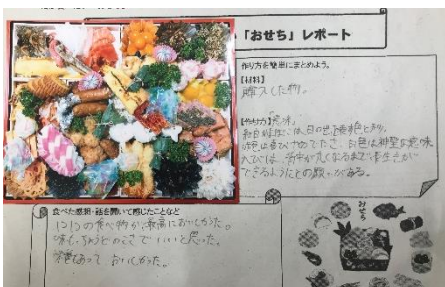 「おせち」レポート
作り方を簡単にまとめよう。
【材料】
購入した物。
【やり方】【意味】
紅白蒲鉾は、日の出
紅色は喜びやめでたさ、白色は神聖な意味
えびは、背中が丸くなるまで長生きが
できるようにとの願いがある。
食べた感想・話を聞いて感じたことなど
1つ1つの食べ物が最高においしかった。
味もちょうどのこさでいいと思った。
おいしかった。
おせち